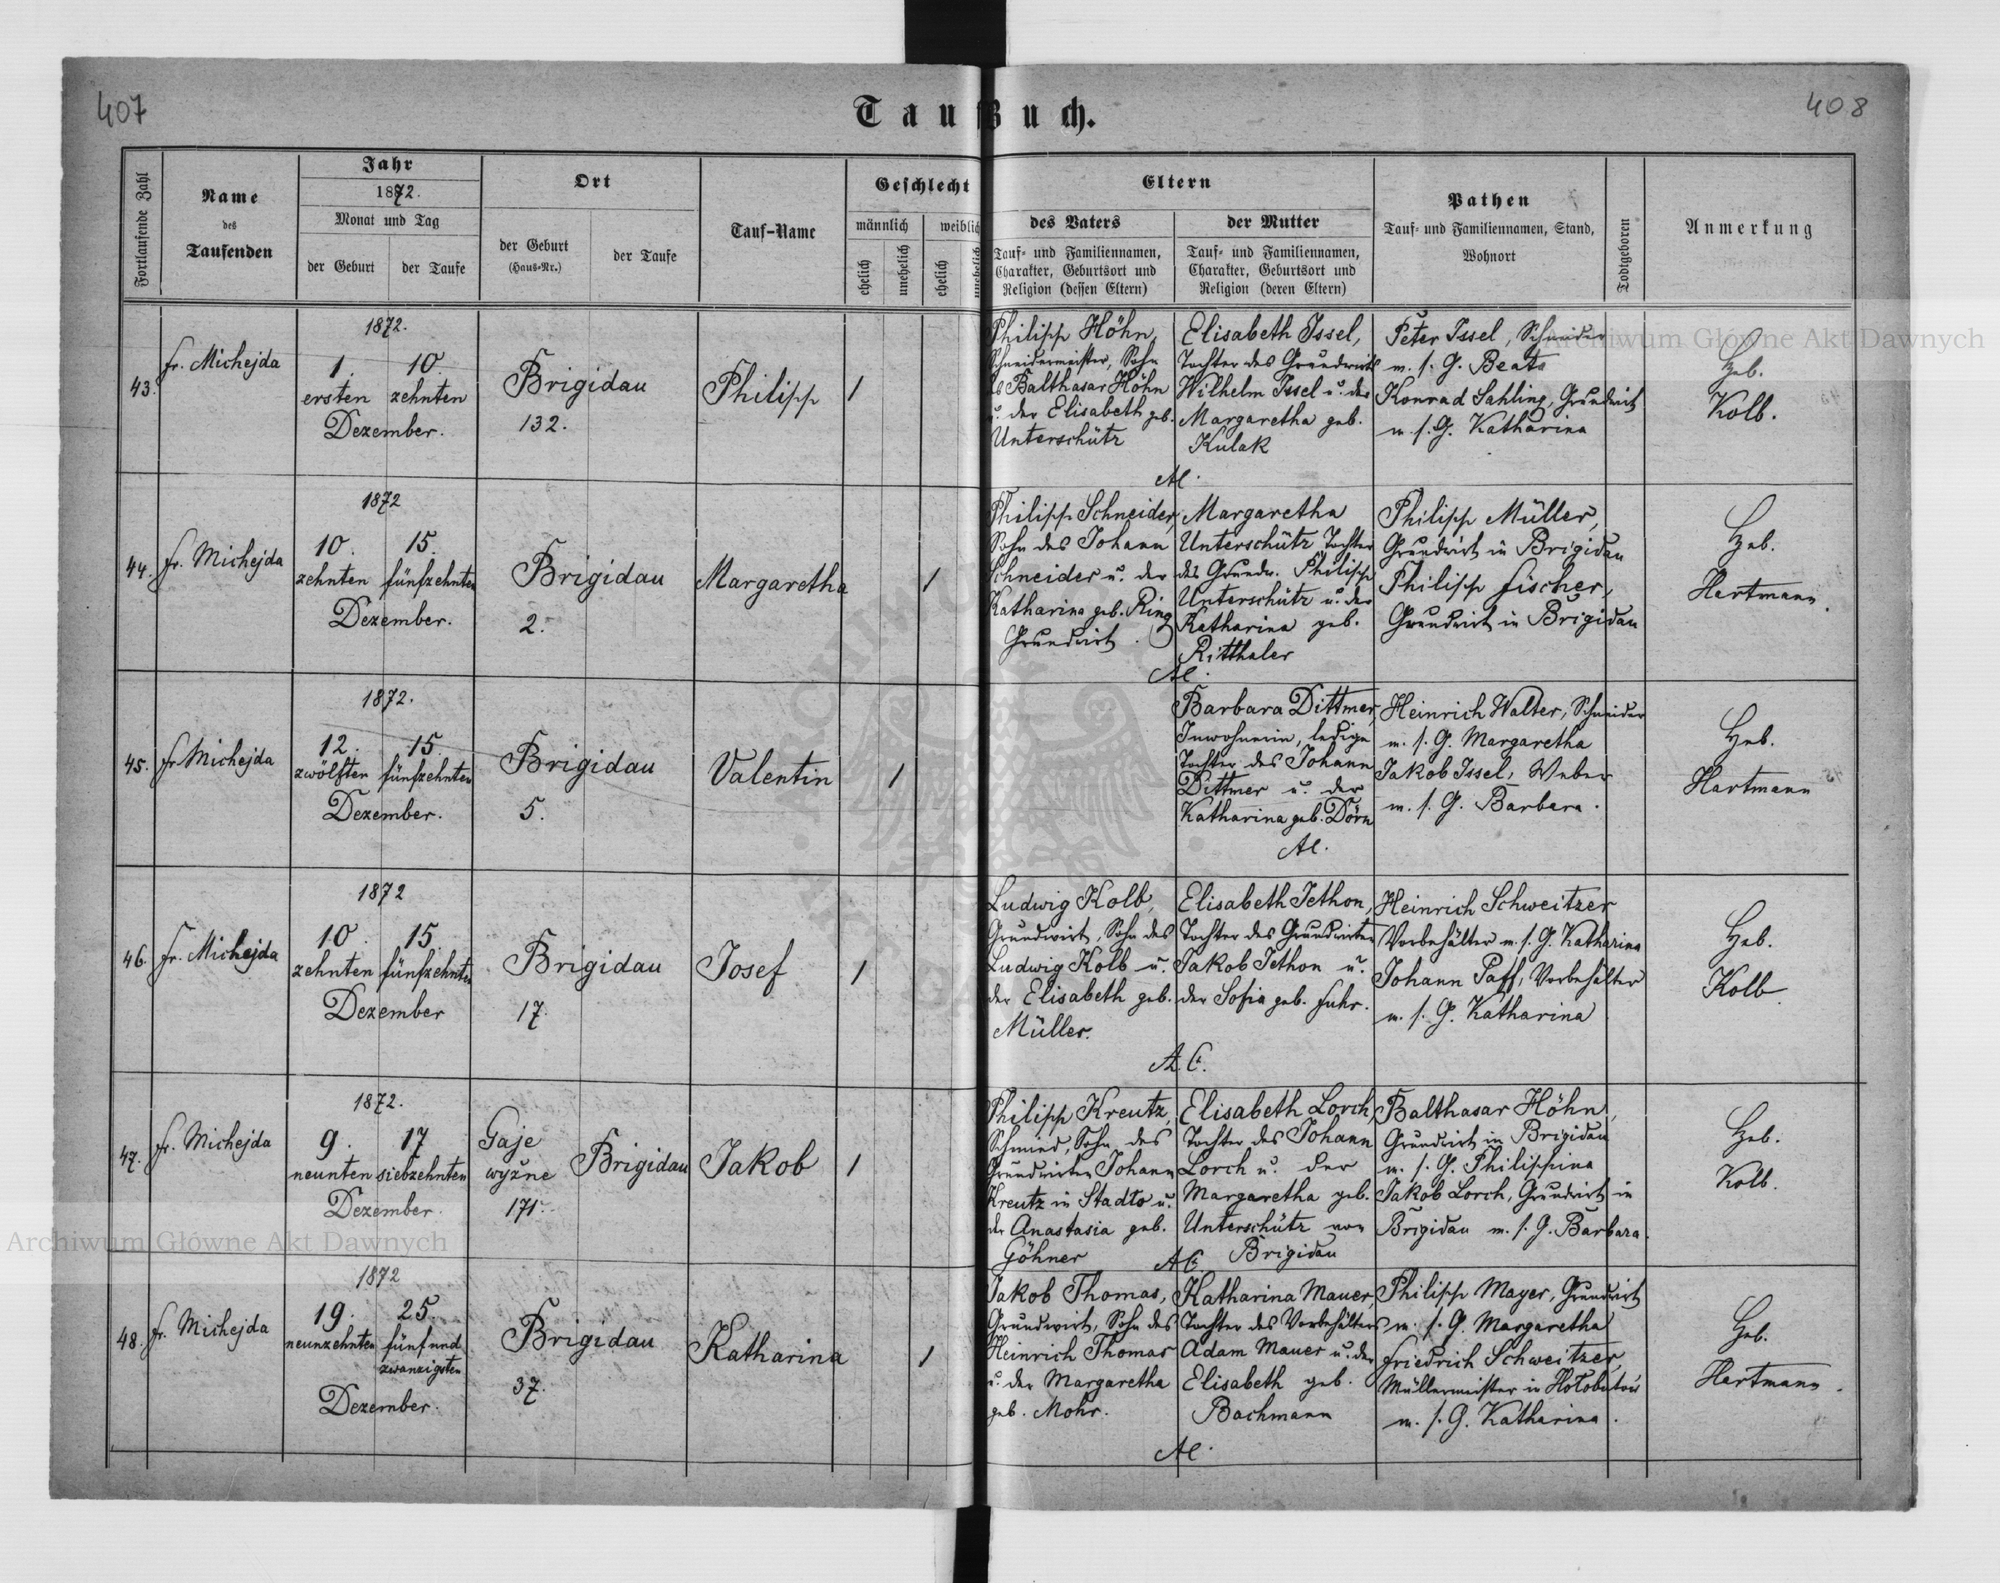 407
408
Taufbuch.
Fortlaufende Zahl
Name
des
Taufenden
Jahr
1872.
Monat und Tag
der Geburt
der Taufe
Ort
der Geburt
(Haus-Nr.)
der Taufe
Tauf-Name
Geschlecht
männlich
weiblich
ehelich
unehelich
ehelich
unehelich
Eltern
des Vaters
Tauf- und Familiennamen,
Charakter, Geburtsort und
Religion (dessen Eltern)
der Mutter
Tauf- und Familiennamen,
Charakter, Geburtsort und
Religion (deren Eltern)
Pathen
Tauf- und Familiennamen, Stand,
Wohnort
Todtgeboren
Anmerkung
43.
Fr. Michejda
1872.
1. 10.
ersten zehnten
Dezember.
Brigidau
132.
Philipp
1
Philipp Höhn,
Schneidermeister, Sohn
des Balthasar Höhn
u. der Elisabeth geb.
Unterschütz
Elisabeth Issel,
Tochter des Grundwirts
Wilhelm Issel u. der
Margaretha geb.
Kulak
AC.
Peter Issel, Schneider
m. s. G. Beata
Konrad Sahling, Grundwirt
m. s. G. Katharina
Heb.
Kolb.
44.
Fr. Michejda
1872
10. 15.
zehnten fünfzehnten
Dezember.
Brigidau
2.
Margaretha
1
Philipp Schneider,
Sohn des Johann
Schneider u. der
Katharina geb. Ring
Grundwirt.
Margaretha
Unterschütz Tochter
des Grundw. Philipp
Unterschütz u. der
Katharina geb.
Ritthaler
AC.
Philipp Müller,
Grundwirt in Brigidau
Philipp Fischer,
Grundwirt in Brigidau
Heb.
Hartmann.
45.
Fr. Michejda
1872.
12. 15.
zwölften fünfzehnten
Dezember.
Brigidau
5.
Valentin
1
Barbara Dittmer,
Inwohnerin, ledige
Tochter des Johann
Dittmer u. der
Katharina geb. Dörn
AC.
Heinrich Walter, Schneider
m. s. G. Margaretha
Jakob Issel, Weber
m. s. G. Barbara.
Heb.
Hartmann
46.
Fr. Michejda
1872
10. 15.
zehnten fünfzehnten
Dezember
Brigidau
17.
Josef
1
Ludwig Kolb,
Grundwirt, Sohn des
Ludwig Kolb u.
der Elisabeth geb.
Müller.
Elisabeth Jethon,
Tochter des Grundwirten
Jakob Jethon u.
der Sofia geb. Fuhr.
A.C.
Heinrich Schweitzer
Vorbehälter m. s. G. Katharina
Johann Paff, Vorbehälter
m. s. G. Katharina
Heb.
Kolb.
47.
Fr. Michejda
1872.
9. 17
neunten siebzehnten
Dezember.
Gaje
wyżne
171.
Brigidau
Jakob
1
Philipp Kreutz,
Schmied, Sohn des
Grundwirten Johann
Kreutz in Stadło u.
der Anastasia geb.
Göhner
Elisabeth Lorch,
Tochter des Johann
Lorch u. der
Margaretha geb.
Unterschütz von
Brigidau
A.C.
Balthasar Höhn,
Grundwirt in Brigidau
m. s. G. Philippina
Jakob Lorch, Grundwirt in
Brigidau m. s. G. Barbara.
Heb.
Kolb.
48.
Fr. Michejda
1872
19. 25.
neunzehnten fünfund
zwanzigsten
Dezember.
Brigidau
37.
Katharina
1
Jakob Thomas,
Grundwirt, Sohn des
Heinrich Thomas
u. der Margaretha
geb. Mohr.
Katharina Mauer,
Tochter des Vorbehälters
Adam Mauer u. der
Elisabeth geb.
Bachmann
AC.
Philipp Mayer, Grundwirt
m. s. G. Margaretha
Friedrich Schweitzer,
Müllermeister in Hołobutów
m. s. G. Katharina.
Heb.
Hartmann.
Archiwum Główne Akt Dawnych
Archiwum Główne Akt Dawnych